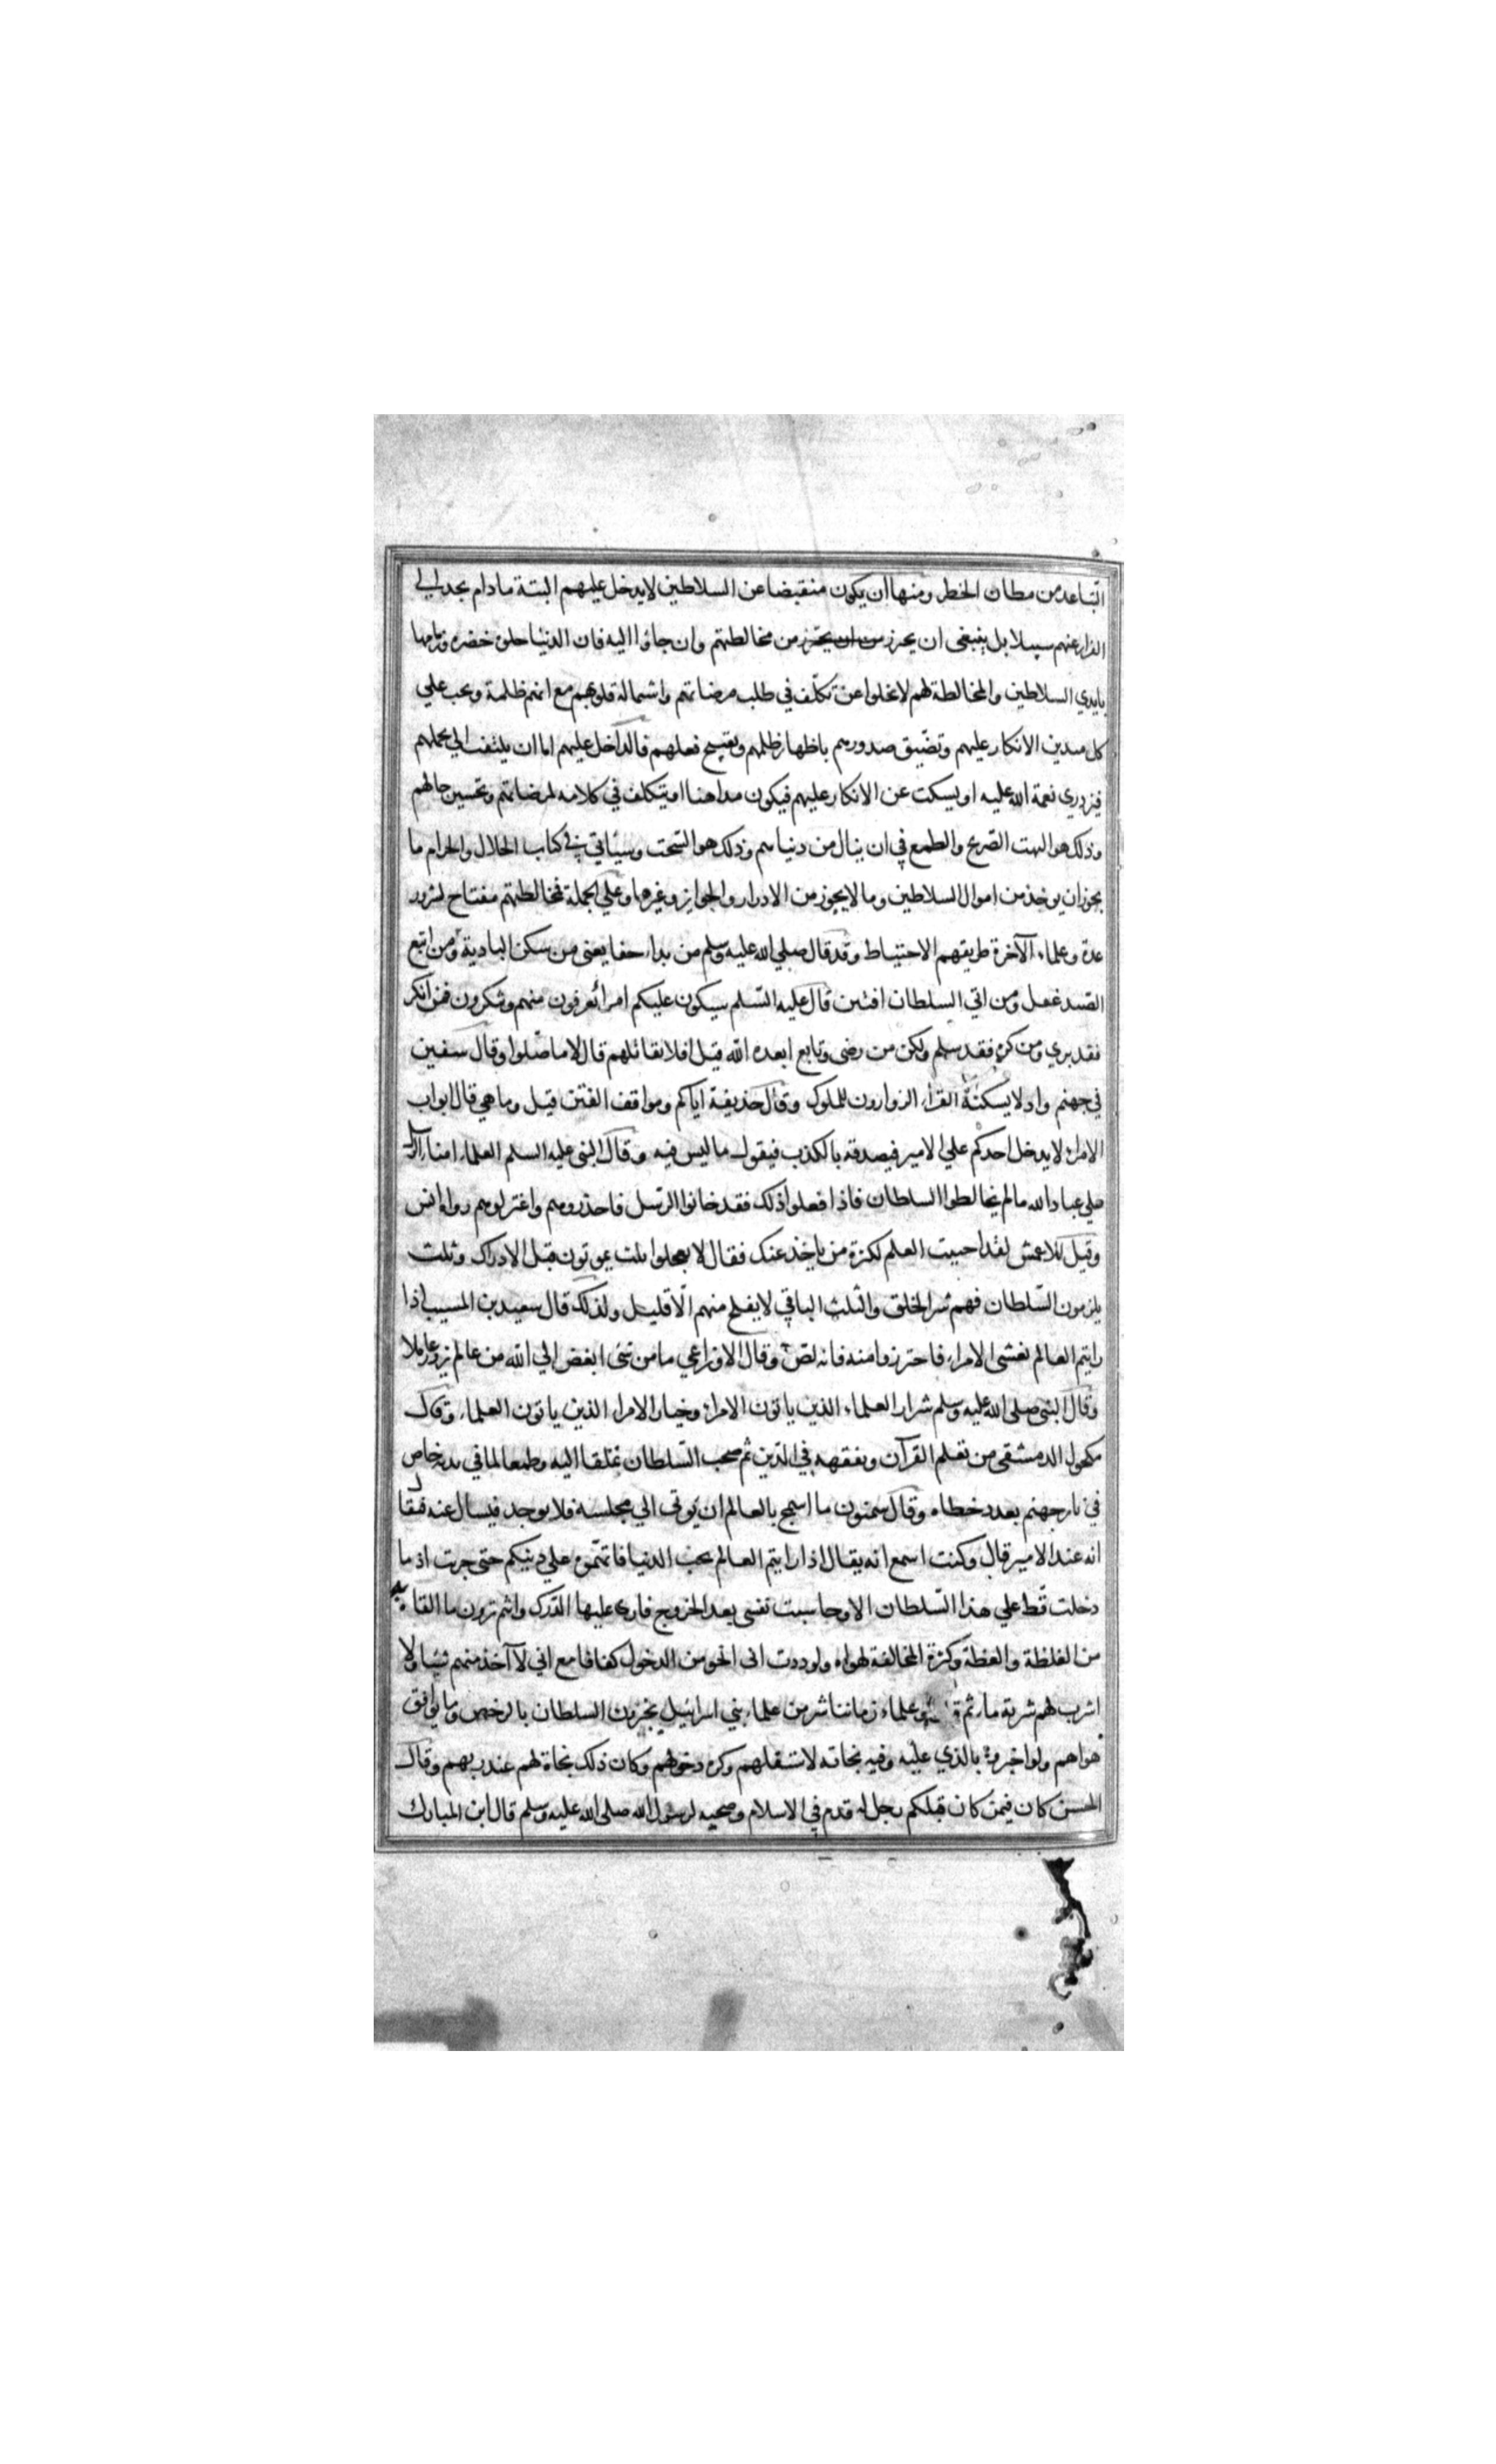 التباعد من مظان الخطر ومنها ان يكون منقبضا عن السلاطين لا يدخل عليهم البتة ما دام يجد الي
الفرار عنهم سبيلا بل ينبغي ان يحرز من ان يحترز من مخالطتهم وان جاؤا اليه فان الدنيا حلوة خضره وزمامها
بايدي السلاطين والمخالطة لهم لا تخلوا عن تكلف في طلب مرضاتهم واستمالة قلوبهم مع انهم ظلمة ويجب علي
كل متدين الانكار عليهم وتضييق صدورهم باظهار ظلمهم وتقبيح فعلهم فالداخل عليهم اما ان يلتفت الي تجملهم
فيزدري نعمة الله عليه او يسكت عن الانكار عليهم فيكون مداهنا او يتكلف في كلامه لمرضاتهم وتحسين حالهم
وذلك هو البهت الصريح والطمع في ان ينال من دنياهم وذلك هو السحت وسياتي في كتاب الحلال والحرام ما
يجوز ان يوخذ من اموال السلاطين وما لا يجوز من الادرار والجوايز وغيرها وعلي الجملة فمخالطتهم مفتاح لشرور
عدة وعلماء الآخرة طريقهم الاحتياط وقد قال صلي الله عليه وسلم من بداء جفا يعني من سكن البادية ومن اتبع
الصيد غفل ومن اتي السلطان افتتن قال عليه السلم سيكون عليكم امرا تعرفون منهم وتنكرون فمن انكر
فقد بري ومن كره فقد سلم ولكن من رضي وتابع ابعده الله قيل افلا نقاتلهم قال لا ما صلوا وقال سفين
في جهنم واد لا يسكنه القراء الزوارون للملوك وقال حذيفة اياكم ومواقف الفتن قيل وما هي قال ابواب
الامراء لا يدخل احدكم علي الامير فيصدقه بالكذب فيقول ما ليس فيه وقال النبي عليه السلم العلماء امناء الرسل
علي عباد الله ما لم يخالطوا السلطان فاذا فعلوا ذلك فقد خانوا الرسل فاحذروهم واعتزلوهم رواه انس
وقيل للاعمش لقد احييت العلم لكثرة من ياخذ عنك فقال لا تعجلوا ثلث يموتون قبل الادراك وثلث
يلزمون السلطان فهم شر الخلق والثلث الباقي لا يفلح منهم الا قليل ولذلك قال سعيد بن المسيب اذا
رايتم العالم يغشى الامراء فاحترزوا منه فانه لص وقال الاوزاعي ما من شئ ابغض الي الله من عالم يزور عاملا
وقال النبي صلي الله عليه وسلم شرار العلماء الذين ياتون الامراء وخيار الامراء الذين ياتون العلماء وقال
مكحول الدمشقي من تعلم القرآن وتفقه في الدين ثم صحب السلطان تملقا اليه وطمعا لما في يده خاض
في نار جهنم بعدد خطاه وقال سمنون ما اسمج بالعالم ان يوتى الي مجلسه فلا يوجد فيسال عنه فيقال
انه عند الامير قال وكنت اسمع انه يقال اذا رايتم العالم يحب الدنيا فاتهموه علي دينكم حتى جربت اذ ما
دخلت قط علي هذا السلطان الا وحاسبت نفسي بعد الخروج فاري عليها الدرك وانتم ترون ما القاه به
من الغلظة والفظة وكثرة المخالفة لهواه ولوددت اني انجو من الدخول كفافا مع اني لا آخذ منهم شيا ولا
اشرب لهم شربة ماء ثم قال وعلماء زماننا شر من علماء بني اسرائيل يخبرون السلطان بالرخص وما يوافق
هواهم ولو اخبروه بالذي عليه وفيه نجاته لاستثقلهم وكره دخولهم وكان ذلك نجاة لهم عند ربهم وقال
الحسن كان فيمن كان قبلكم رجل له قدم في الاسلام وصحبه لرسول الله صلي الله عليه وسلم قال ابن المبارك